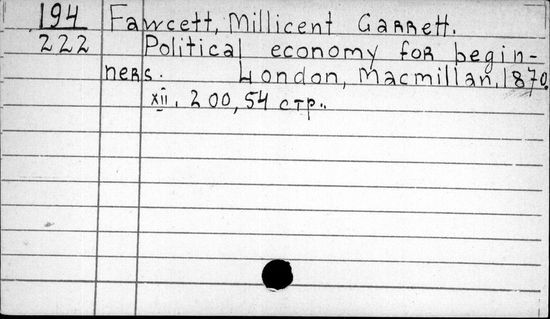 194 Fawcett, Millicent Garrett.
222 Political economy for begin-
ners. London, Macmillan, 1870.
xii, 200, 54 стр..